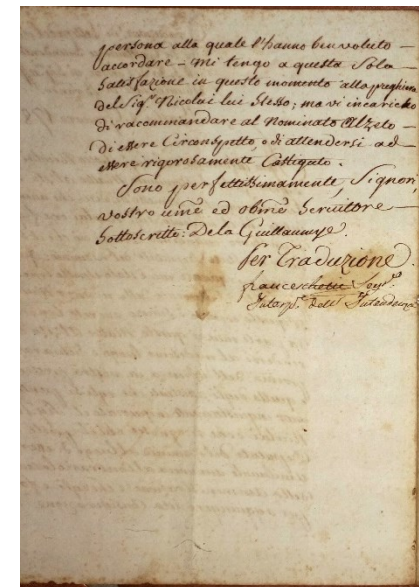 persona alla quale l'hanno ben voluto -
accordare - mi tengo a questa Sola
Satisfazione in questo momento alla preghiera
del Sig.r Nicolai lui Stesso; ma vi incarico
di raccommandare al Nominato
di essere Circonspetto, o di attendersi ad -
essere rigorosamente Castigato.
Sono perfettissimamente, Signori,
vostro ume ed obme Servitore -
Sottoscritto: De la Guillaumye.
Per Traduzione.
franceschetti
dell' Intendenza